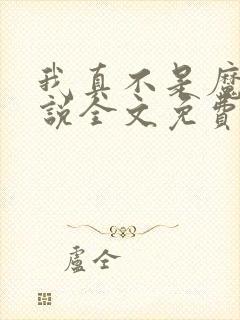 我真不是魔
說全文免費
盧仝